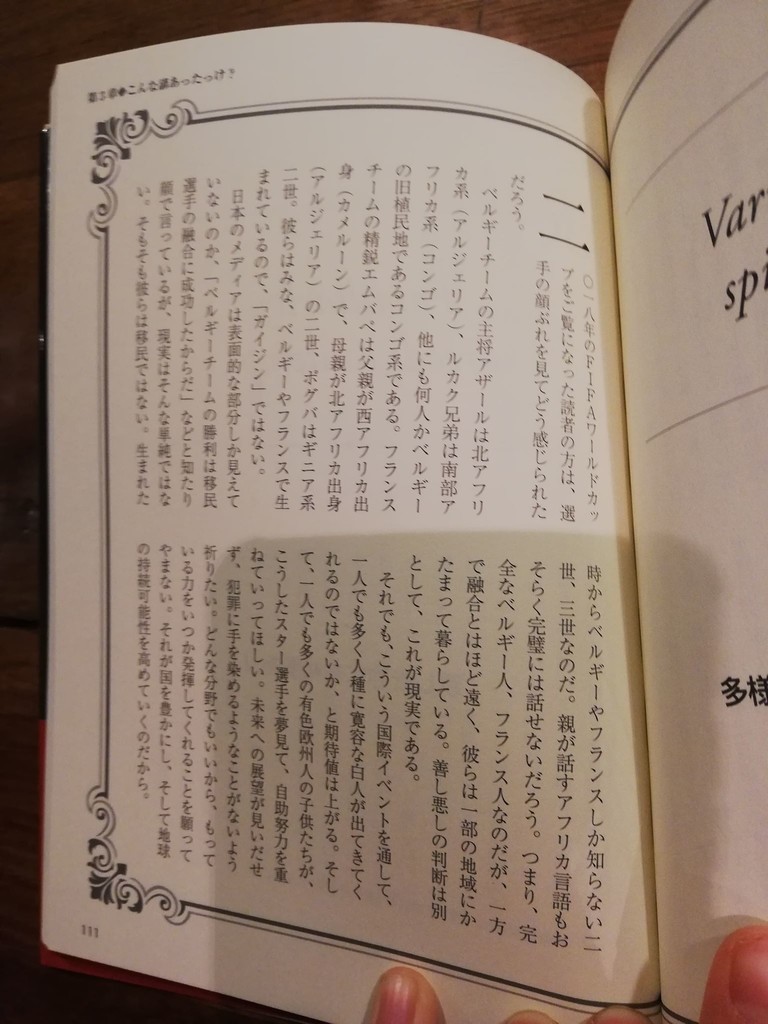 第3章●こんな話あったっけ？
二〇一八年のFIFAワールドカッ
プをご覧になった読者の方は、選
手の顔ぶれを見てどう感じられた
だろう。
ベルギーチームの主将アザールは北アフリ
カ系（アルジェリア）、ルカク兄弟は南部ア
フリカ系（コンゴ）、他にも何人かベルギー
の旧植民地であるコンゴ系である。フランス
チームの精鋭エムバペは父親が西アフリカ出
身（カメルーン）で、母親が北アフリカ出身
（アルジェリア）の二世、ポグバはギニア系
二世。彼らはみな、ベルギーやフランスで生
まれているので、「ガイジン」ではない。
日本のメディアは表面的な部分しか見えて
いないのか、「ベルギーチームの勝利は移民
選手の融合に成功したからだ」などと知たり
顔で言っているが、現実はそんな単純ではな
い。そもそも彼らは移民ではない。生まれた
時からベルギーやフランスしか知らない二
世、三世なのだ。親が話すアフリカ言語もお
そらく完璧には話せないだろう。つまり、完
全なベルギー人、フランス人なのだが、一方
で融合とはほど遠く、彼らは一部の地域にか
たまって暮らしている。善し悪しの判断は別
として、これが現実である。
それでも、こういう国際イベントを通して、
一人でも多く人種に寛容な白人が出てきてく
れるのではないか、と期待値は上がる。そし
て、一人でも多くの有色欧州人の子供たちが、
こうしたスター選手を夢見て、自助努力を重
ねていってほしい。未来への展望が見いだせ
ず、犯罪に手を染めるようなことがないよう
祈りたい。どんな分野でもいいから、もって
いる力をいつか発揮してくれることを願って
やまない。それが国を豊かにし、そして地球
の持続可能性を高めていくのだから。
111
Var
spi
多様